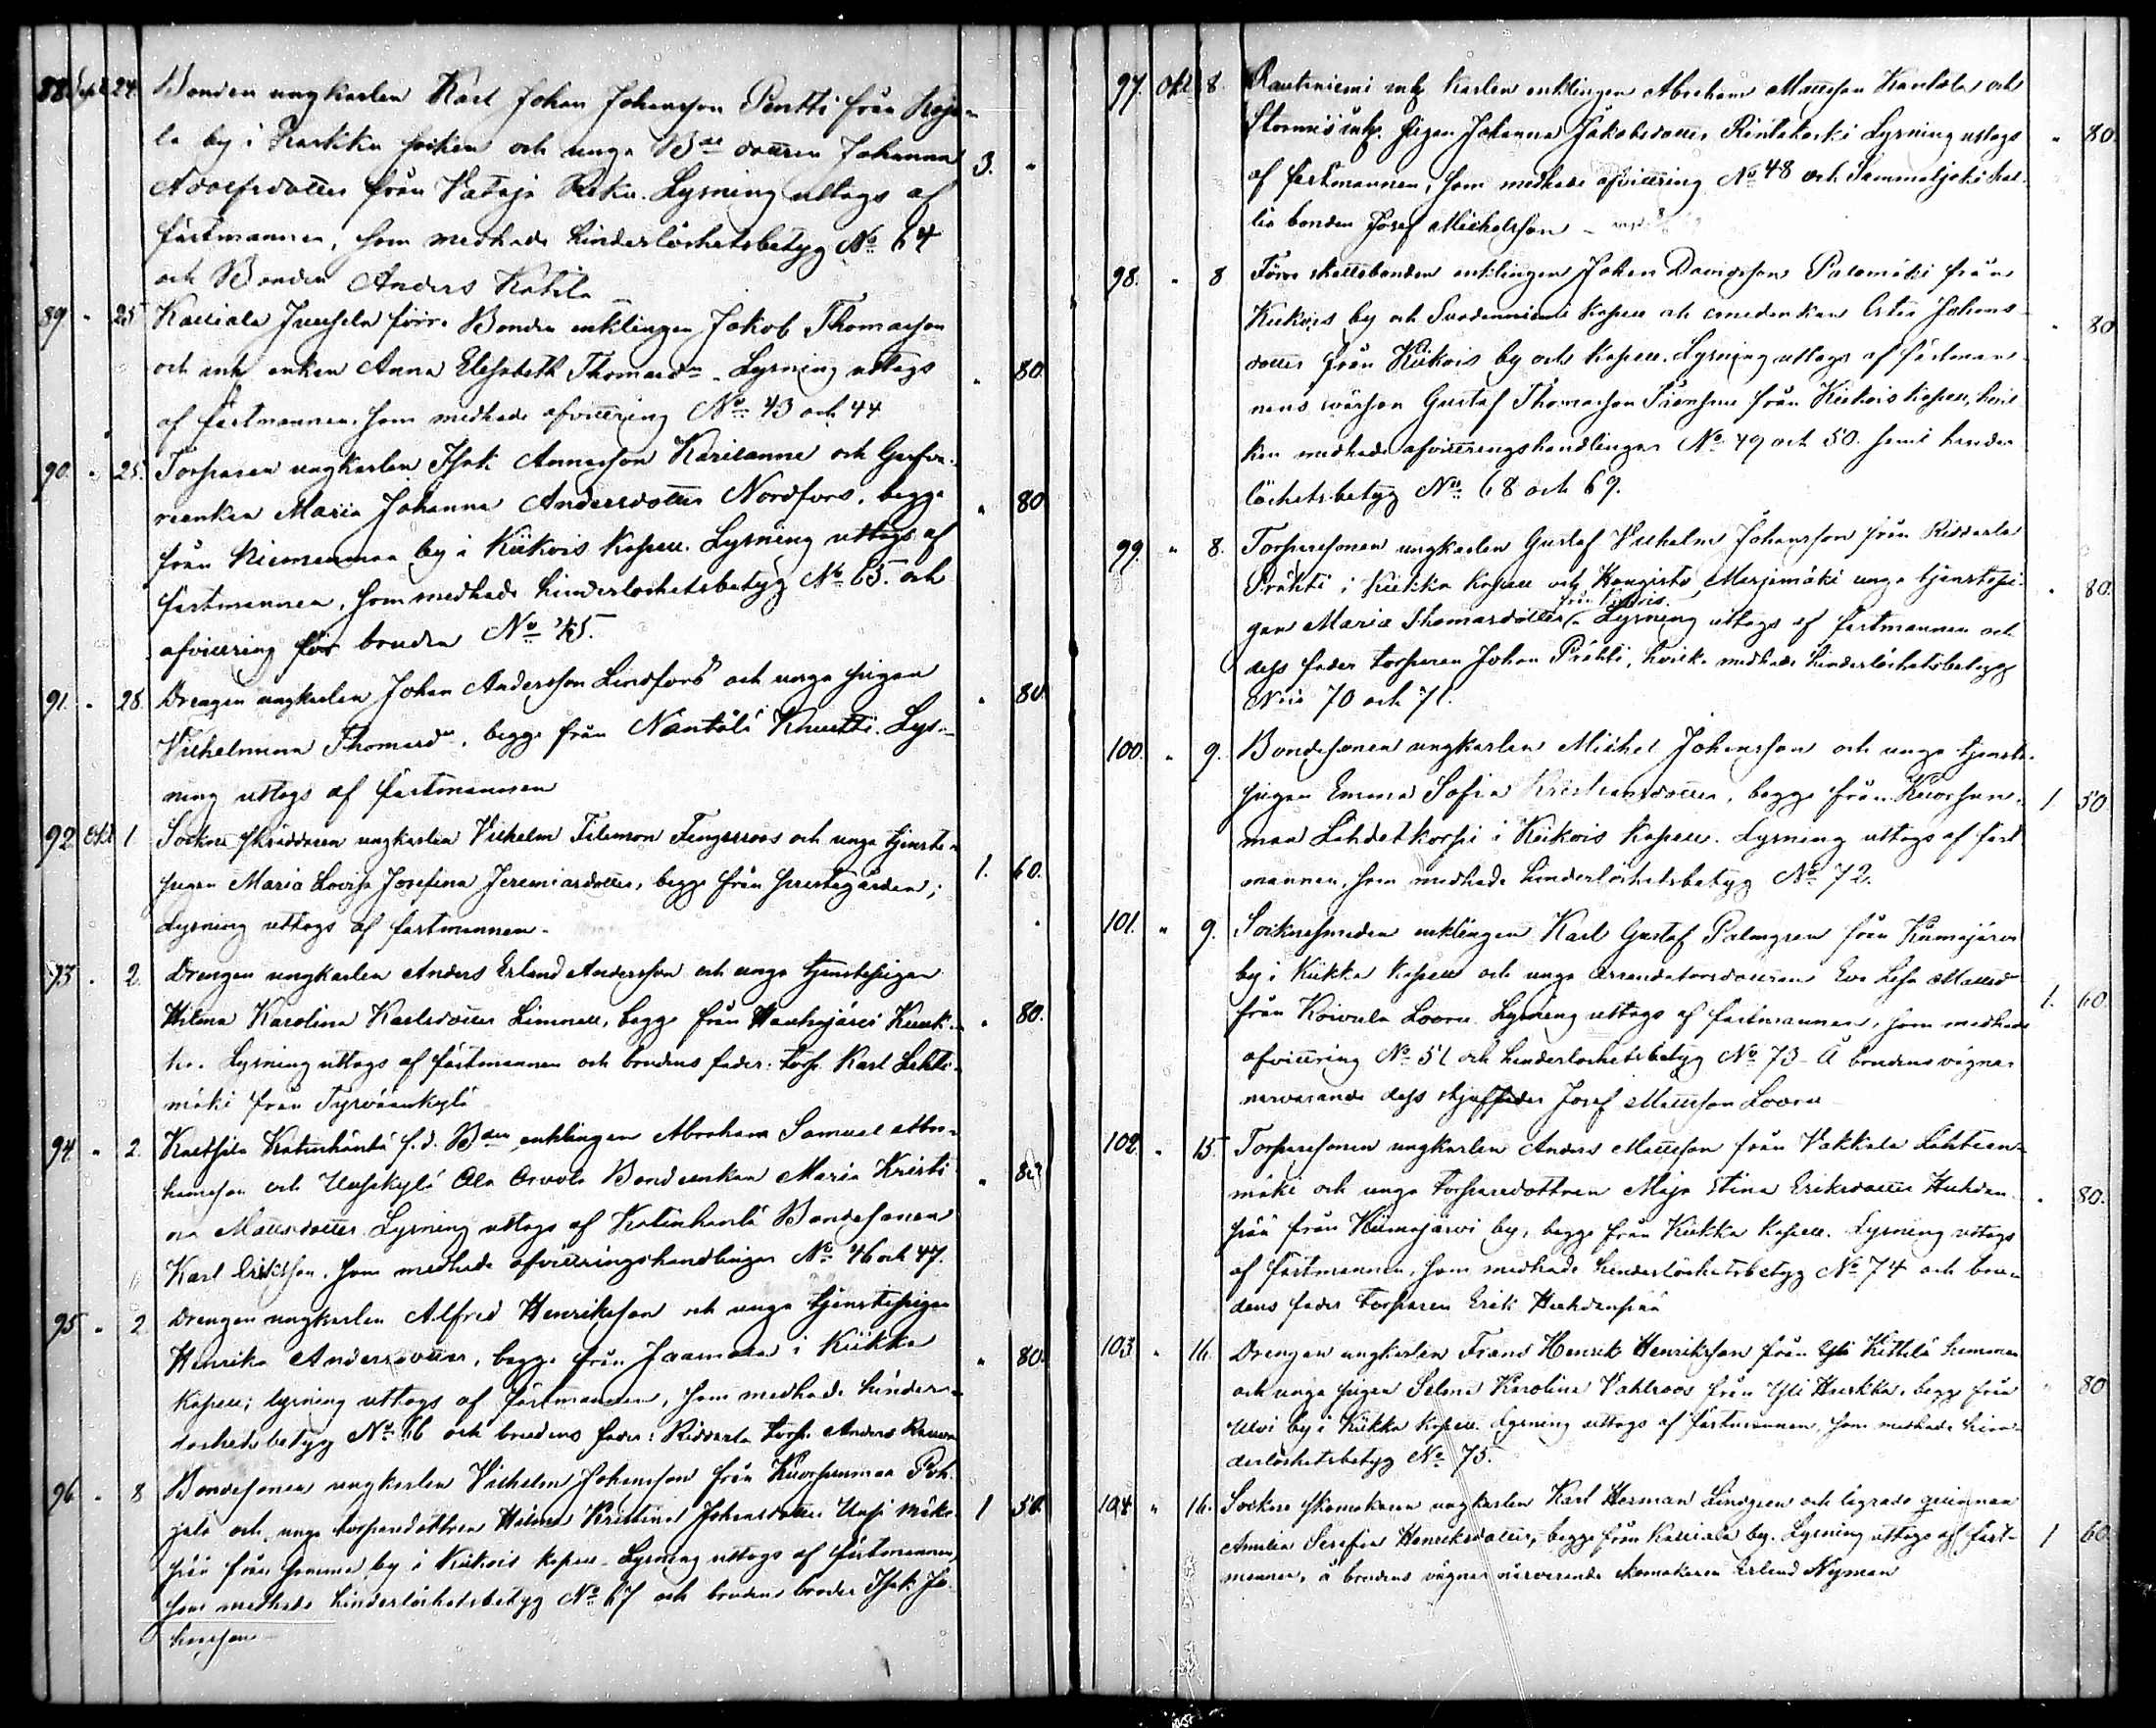 88 Sept. 24. Bonden ungkarlen Karl Johan Johansson Pentti från Koja-
la by i Karkku socken och unga Bde dottren Johanna 3. "
Adolfsdotter från Vataja Reku. Lysning uttogs af
fästmannen, som medhade hinderlöshetsbetyg No 64
och Bonden Anders Katila
89 " 25 Kalliala Jussila förre Bonden enklingen Jakob Thomasson
och inh. enkan Anna Elisabeth Thomasdr. Lysning uttogs " 80.
af fästmannen, som medhade afvittring No 43 och 44
90. " 25. Torparen ungkarlen Isak Annasson Karilanne och Garfva-
reenkan Maria Johanna Andersdotter Nordfors, begge " 80
från Niemenmaa by i Kiikois Kapell. Lysning uttogs af
fästmannen, som medhade hinderlöshetsbetyg No 65. och
afvittring för bruden No 45.
91. " 28. Drengen ungkarlen Johan Andersson Lindfors och unga pigan " 80.
Vilhelmina Thomasdr, begge från Nantölä Knuutti. Lys-
ning uttogs af fästmannen
92 Okt 1 Sockne skräddaren ungkarlen Vilhelm Filemon Fengerroos och unga tjenste-
pigan Maria Lovisa Josefina Jeremiasdotter, begge från prestegården; 1. 60.
Lysning uttogs af fästmannen.
93 " 2. Drengen ungkarlen Anders Erland Andersson och unga tjenstepigan
Hilma Karolina Karlsdotter Limnell, begge från Houhajärvi " 80.
Lysning uttogs af fästmannen och brudens fader: torp. Karl Lehti-
mäki från Tyrväänkylä
94 " 2. Kaltsila Katinhäntä f.d. Bden enklingen Abraham Samuel Abra-
hamsson och Uusikylä Ala Orvola Bondeenkan Maria Kristi- " 80
na Mattsdotter Lysning uttogs af Katinhäntä Bondesonen
Karl Eriksson, som medhade afvittringshandlingar No 46 och 47.
95 " 2 Drengen ungkarlen Alfred Henriksson och unga tjenstepigan
Henrika Andersdotter, begge från Jaamaa i Kiikka " 80.
Kapell; lysning uttogs af fästmannen, som medhade hinder-
löshetsbetyg No 66 och brudens fader: Ridvala torp. Anders
96 " 8 Bondesonen ungkarlen Vilhelm Johansson från Kuorsunmaa Poh-
jala och unga torparedottren Hilma Kristina Johansdotter Uusi Mäki- 1 50.
pää från samma by i Kiikois kapell. Lysning uttogs af fästmannen,
som medhade hinderlöshetsbetyg No 67 och brudens broder Isak Jo-
hansson
97. Okt 8. Rautaniemi inh. karlen enklingen Abraham Mattsson Kantola och
Stormi inh. pigan Johanna Jakobsdotter Rintakoski Lysning uttogs " 80.
af fästmannen, som medhade afvittring No 48 och Sammaljoki
bonden Josef Michelsson
98. " 8 Förre skattebonden enklingen Johan Davidsson Palomäki från
Kiikois by och Suodenniemi Kapell och smedenkan Johans- " 80
dotter från Kiikois by och Kapell. Lysning uttogs af fästman-
nens svärson Gustaf Thomasson från Kiikois kapell, hvil-
ken medhade afvittringshandlingar No 49 och 50. samt hinder-
löshetsbetyg No 68 och 69.
99. " 8. Torparesonen ungkarlen Gustaf Vilhelm Johansson från Ridvala
Präkki i Kiikka kapell och Kangisto Marjamäki unga tjenstepi- " 80.
från Kiikois.
gan Maria Thomasdotter. Lysning uttogs af fästmannen och
dess fader torparen Johan Präkki, hvilka medhade hinderlöshetsbetyg
No 70 och 71.
100. " 9. Bondesonen ungkarlen Michel Johansson och unga tjenste-
pigan Emma Sofia Kristiansdotter, begge från Kuorsun- 1 50
maa Lähdekorpi i Kiikois kapell. Lysning uttogs af fäst-
mannen, som medhade hinderlöshetsbetyg No 72.
101. " 9. Socknesmeden enklingen Karl Gustaf Palmgren från Kiimajärvi
by i Kiikka kapell och unga arrendatorsdottren Eva Lisa Mattsdr
från Koivula Loora. Lysning uttogs af fästmannen, som medhade 1. 60.
afvittring No 51 och hinderlöshetsbetyg No 73. Å brudens vägnar
närvarande dess styffader Josef Mattsson Loora
102. " 15. Torparesonen ungkarlen Anders Mattsson från Vakkala Lahteen-
mäki och unga torparedottren Maja Stina Eriksdotter Huhdan- " 80.
pää från Kiimajärvi by, begge från Kiikka kapell. Lysning uttogs
af fästmannen, som medhade hinderlöshetsbetyg No 74 och bru-
dens fader torparen Erik Huhdanpää
103 " 16. Drengen ungkarlen Frans Henrik Henriksson från Yli Kittilä hemman
och unga pigan Selma Karolina Vahlroos från Yli Hurkka, begge från " 80
Illoi by i Kiikka kapell. Lysning uttogs af fästmannen, som medhade hin-
derlöshetsbetyg No 75.
104 " 16. Sockne skomakaren ungkarlen Karl Herman Lindgren och lägrade qvinnan
Amalia Serafia Henriksdotter, begge från Kalliala by. Lysning uttogs af fäst- 1 60
mannen, å brudens vägnar närvarande skomakaren Erland Nyman